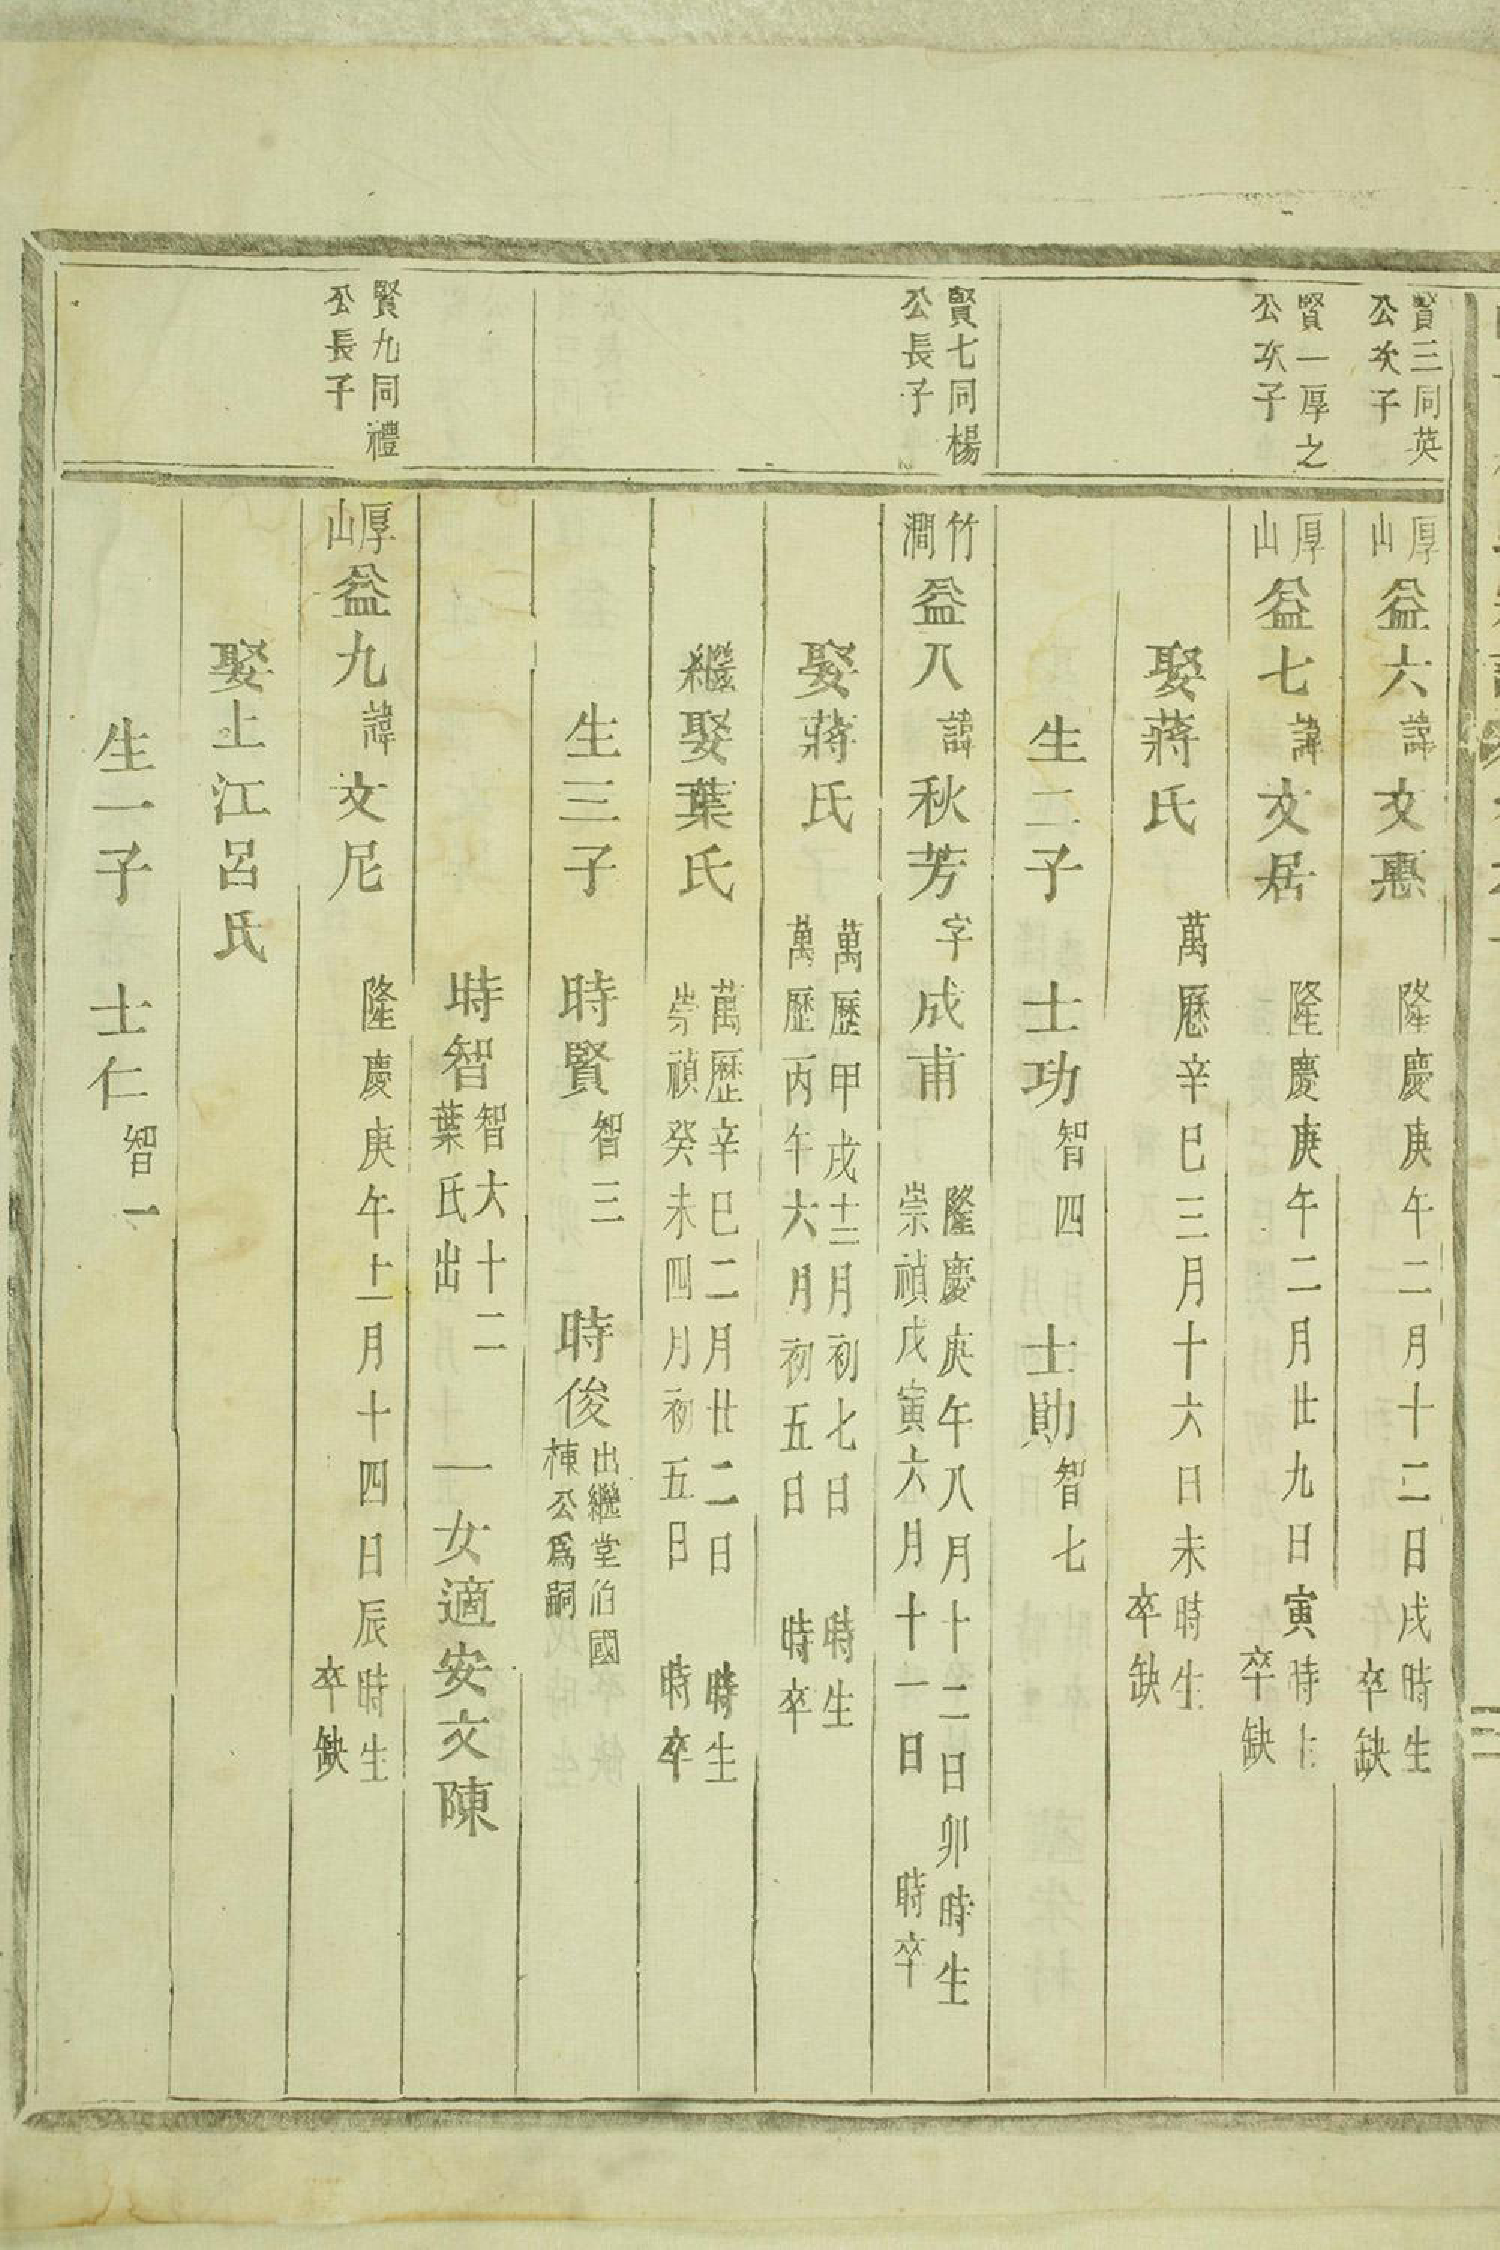 賢三同英
公次子
厚山益六諱文惠 隆慶庚午二月十二日戌時生 卒缺
賢一厚之
公次子
厚山益七諱文居 隆慶庚午二月廿九日寅時生 卒缺
娶蔣氏 萬曆辛巳三月十六日未時生 卒缺
生二子 士功智四 士勛智七
賢七同楊
公長子
竹澗益八諱秋芳字成甫 隆慶庚午八月十二日卯時生
崇禎戊寅六月十一日 時卒
娶蔣氏 萬歷甲戌十二月初七日 時生
萬歷丙午六月初五日 時卒
繼娶葉氏 萬歷辛巳二月廿二日 時生
崇禎癸未四月初五日 時卒
生三子 時賢智三 時俊出繼堂伯國
棟公爲嗣
時智智大十二
葉氏出 一女適安文陳
賢九同禮
公長子
厚山益九諱文尼 隆慶庚午十一月十四日辰時生 卒缺
娶上江呂氏
生一子 士仁智一